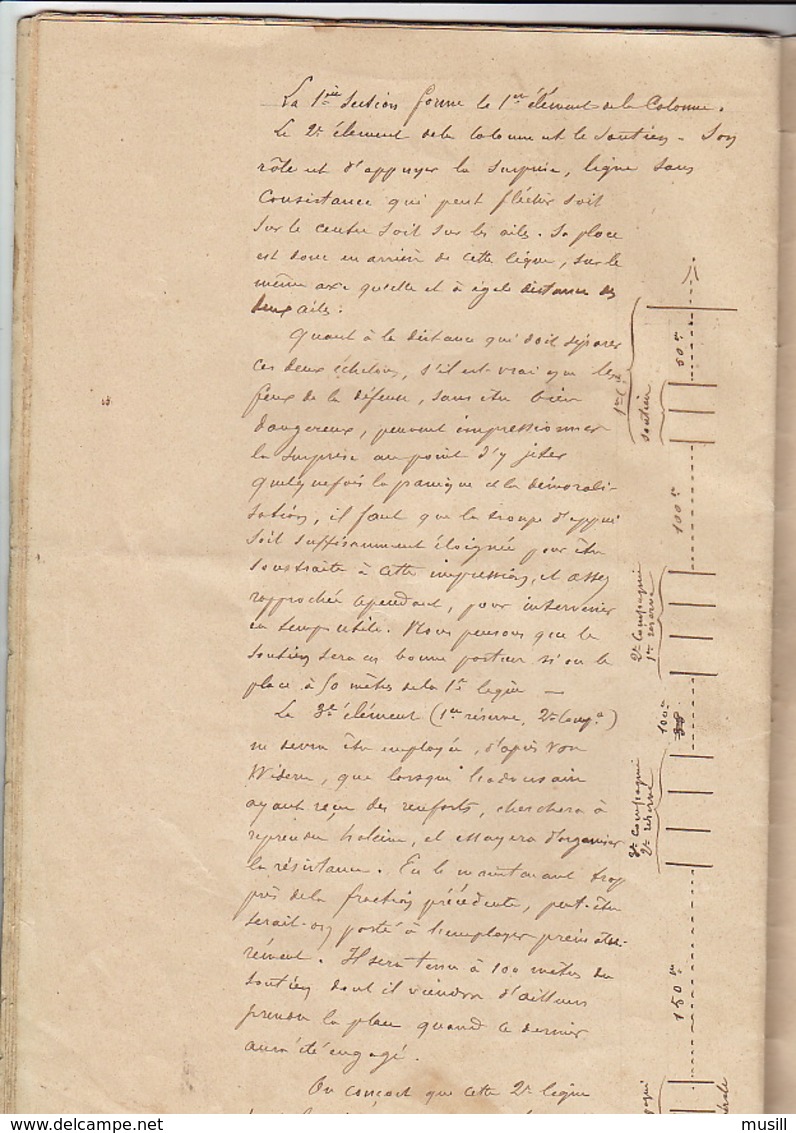 La 1ère Section forme le 1er élément de la Colonne.
Le 2e élément de la Colonne est le Soutien. Son
rôle est d'appuyer la Surprise, ligne sans
Consistance qui peut fléchir soit
sur le centre soit sur les ailes. Sa place
est donc en arrière de cette ligne, sur le
même axe qu'elle et à égale distance des
deux ailes.
Quant à la distance qui doit séparer
ces deux échelons, s'il est vrai que les
feux de la défense, sans être bien
dangereux, peuvent impressionner
la Surprise au point d'y jeter
quelquefois la panique et la démorali-
sation, il faut que la troupe d'appui
soit suffisamment éloignée pour être
soustraite à cette impression, et assez
rapprochée cependant, pour intervenir
en temps utile. Nous pensons que le
Soutien sera en bonne posture si on le
place à 50 mètres de la 1e ligne —
Le 3e élément (1re réserve, 2e Comp.ie)
ne devra être employée, d'après Von
Widern, que lorsque l'adversaire
ayant reçu des renforts, cherchera à
reprendre haleine, et essayera d'organiser
la résistance. En le maintenant trop
près de la fraction précédente, peut-être
serait-on porté à l'employer prématu-
rément. Il sera tenu à 100 mètres du
Soutien dont il viendra d'ailleurs
prendre la place quand ce dernier
aura été engagé.
On conçoit que cette 2e ligne
50 m
1re Cie
Soutien
100 m
2e Compagnie
1re réserve
100 m
3e Compagnie
2e réserve
150 m